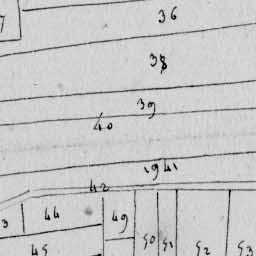 7
36
38
39
40
41
42
3
44
49
45
50
51
52
53